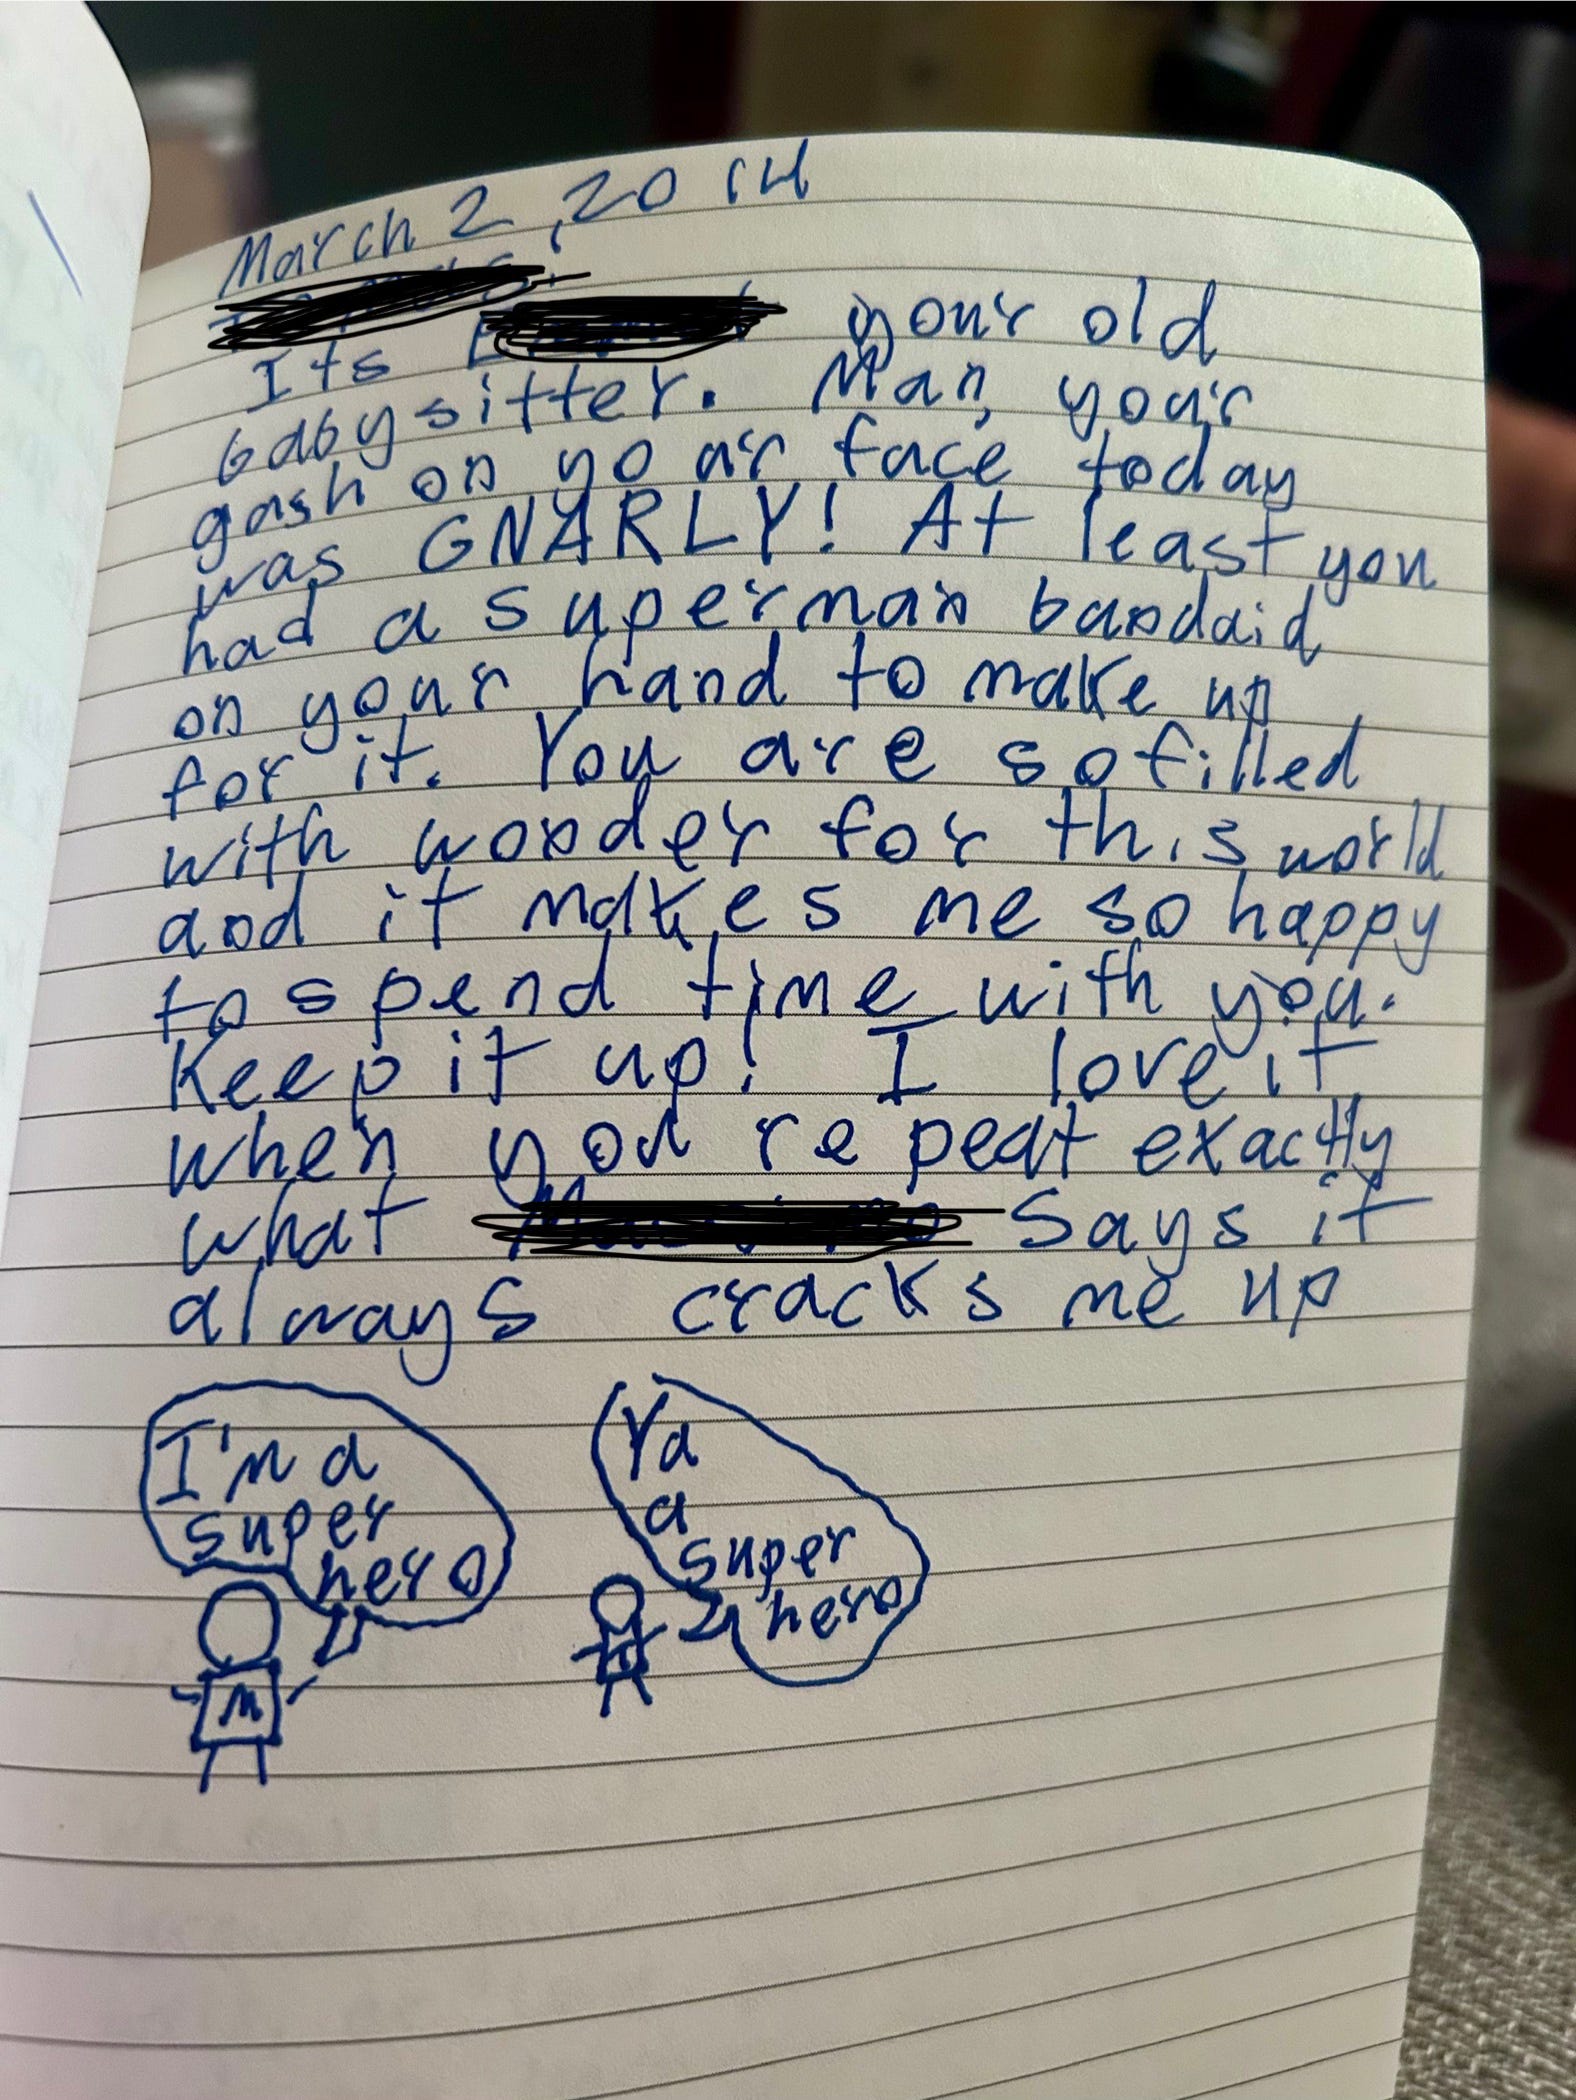 March 2, 2014
Its your old
babysitter. Man, your
gash on your face today
was GNARLY! At least you
had a superman bandaid
on your hand to make up
for it. You are so filled
with wonder for this world
and it makes me so happy
to spend time with you.
Keep it up! I love it
when you repeat exactly
what says it
always cracks me up
I'm a
super
hero
M
Ya
a
super
hero